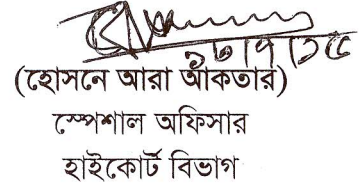 ১৮।৭।১৫
(হোসনে আরা আকতার)
স্পেশাল অফিসার
হাইকোর্ট বিভাগ